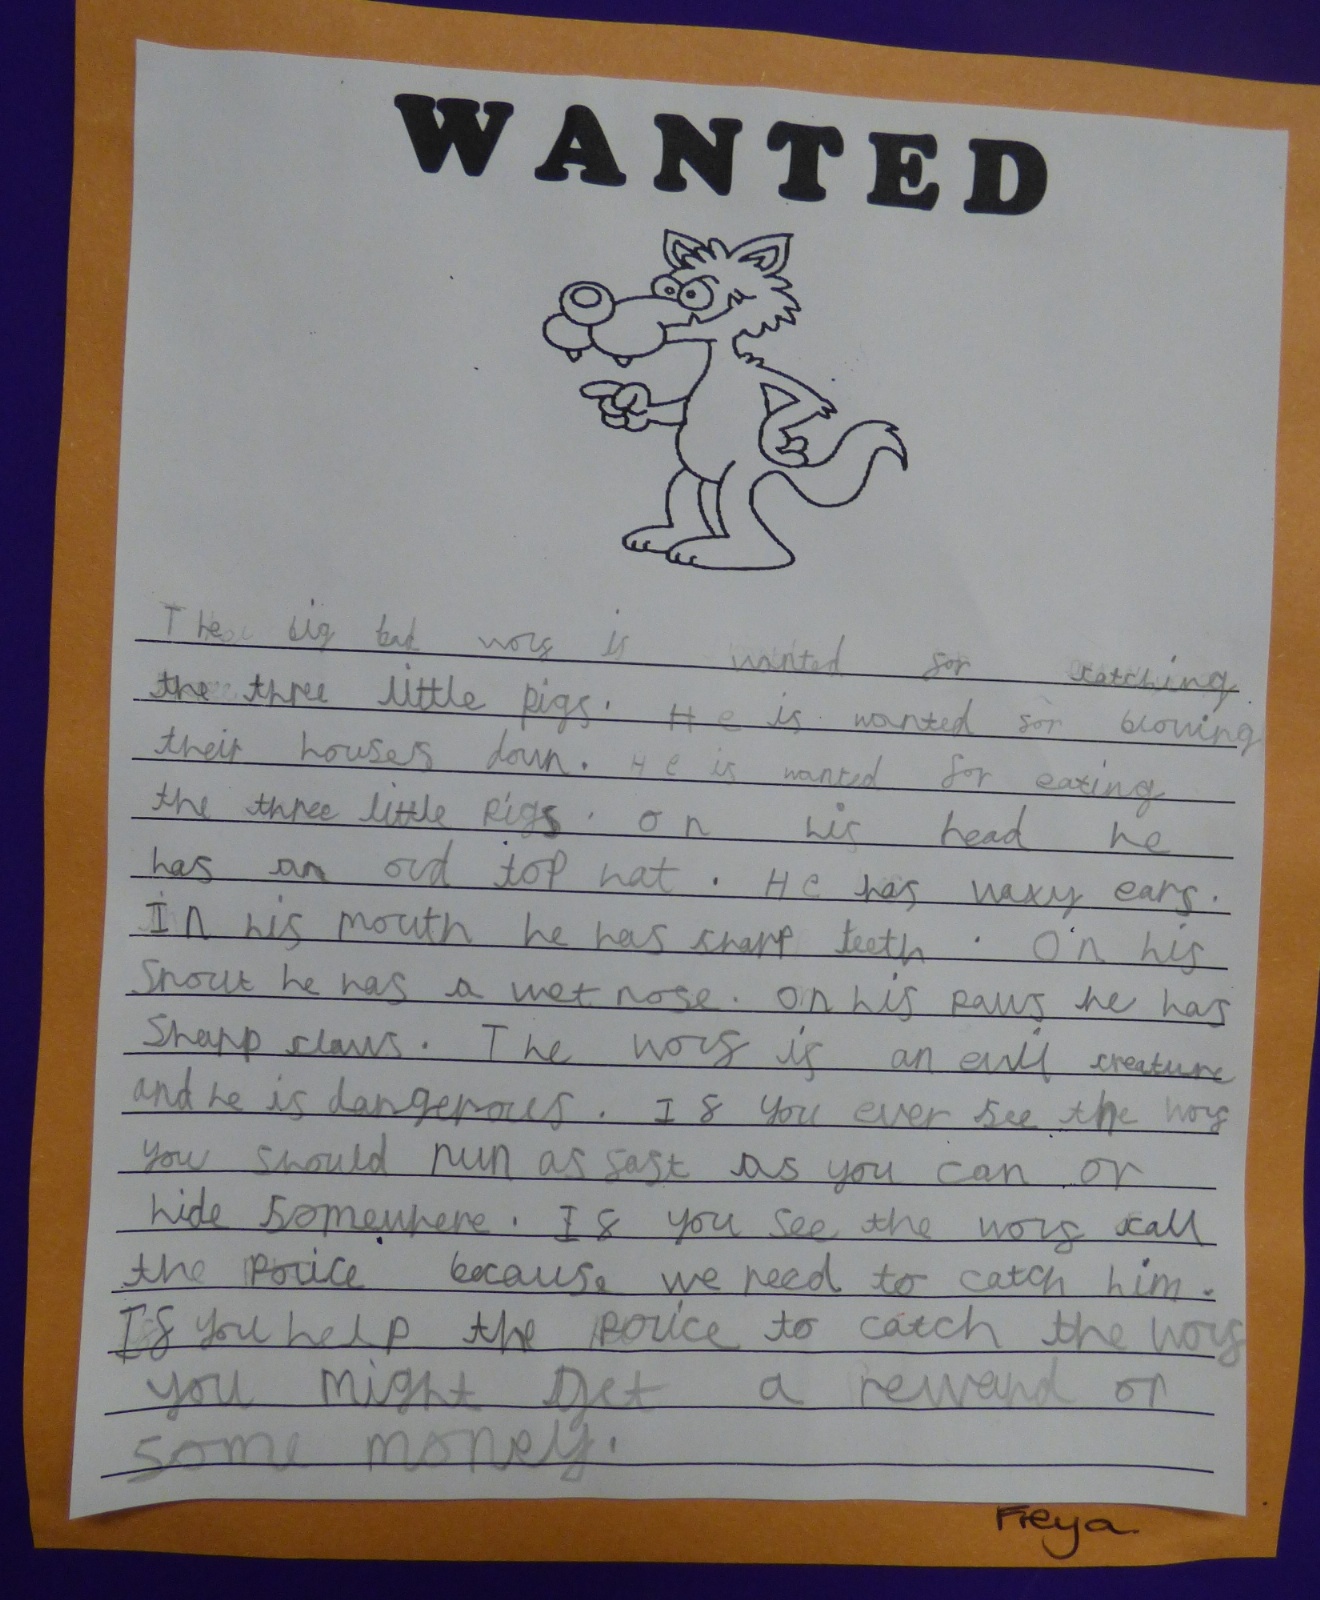 WANTED
The big bad wolf is wanted for catching
the three little pigs. He is wanted for blowing
their houses down. He is wanted for eating
the three little pigs. on his head he
has an old top hat. He has waxy ears.
In his mouth he has sharp teeth. On his
snout he has a wet nose. on his paws he has
sharp claws. The wolf is an evil creature
and he is dangerous. If you ever see the wolf
you should run as fast as you can or
hide somewhere. If you see the wolf call
the police because we need to catch him.
If you help the police to catch the wolf
you might get a reward or
some money.
Freya.